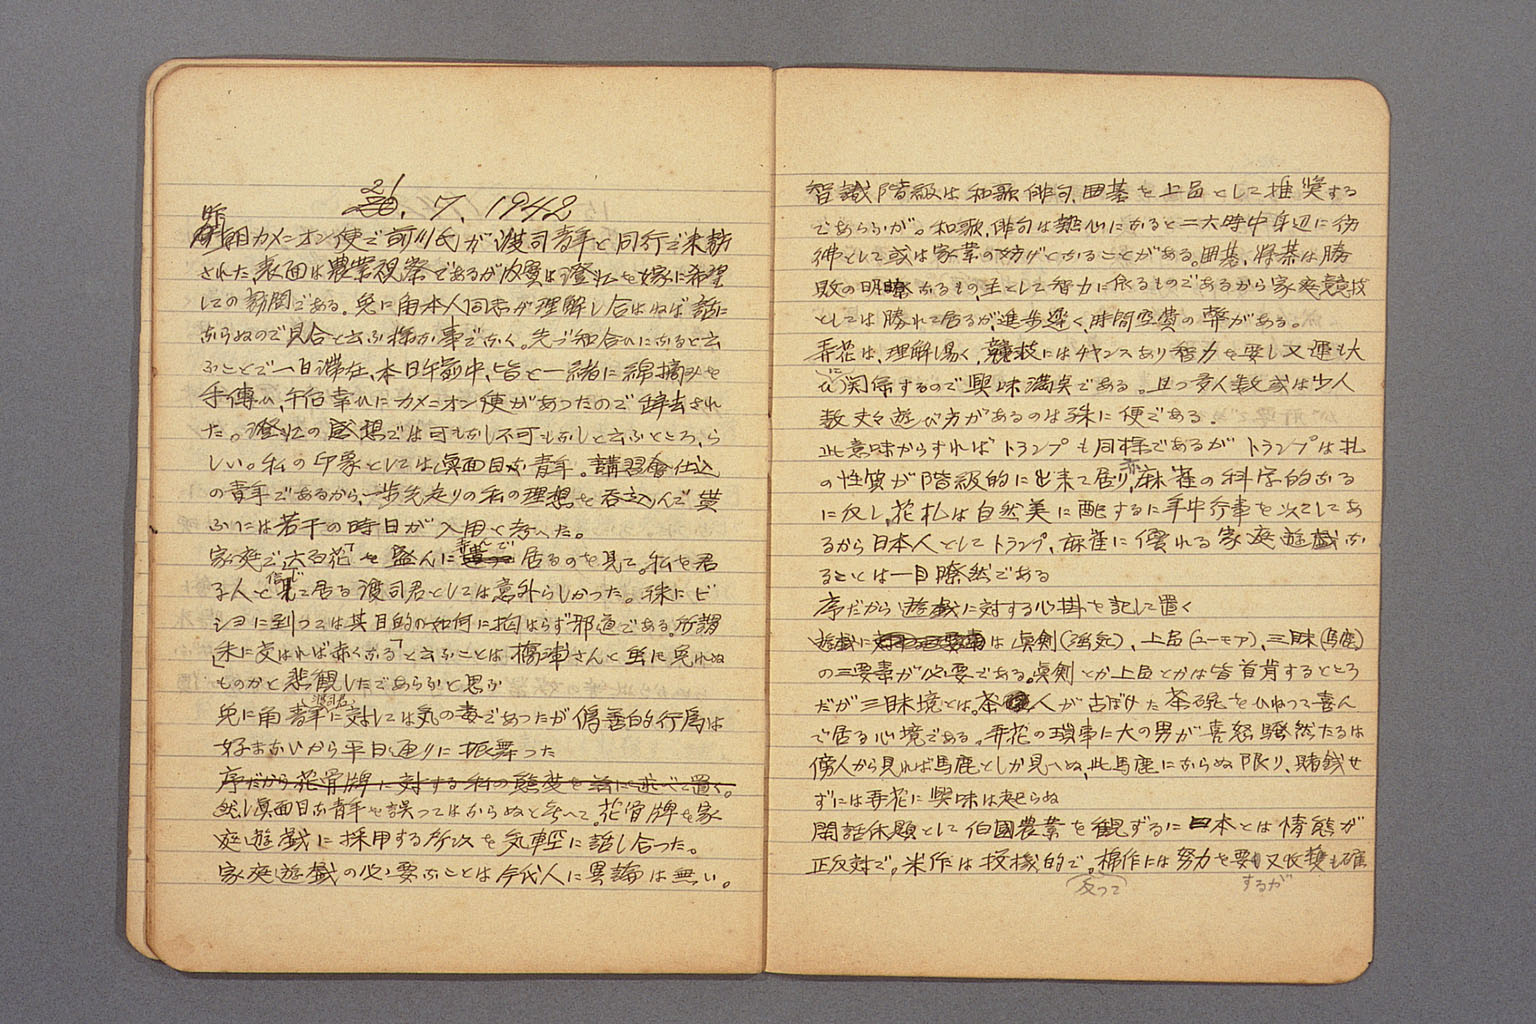 21. 7. 1942
昨朝カメニオン便で前川氏が渡司青年と同行で来訪
された 表面は農業視察であるが内実は澄江を嫁に希望
しての訪問である。兎に角本人同志が理解し合はねば話に
ならぬので見合と云ふ様な事でなく。先づ知合ひになると云
ふことで一日滞在、本日午前中、皆と一緒に綿摘みを
手傳ひ、午后幸ひにカメニオン便があつたので辞去され
た。澄江の感想では可もなし不可もなしと云ふところ、ら
しい。私の印象としては真面目な青年。講習会仕込
の青年であるから、一歩先走りの私の理想を呑込んで貰
ふには若干の時日が入用と考へた。
家庭で六百花を盛んに弄んで居るのを見て。私を君
子人と信じて居る渡司君としては意外らしかつた。殊にビ
ショに到つては其目的の如何に拘はらず邪道である。所謂
「朱に交はれば赤くなる」と云ふことは 橋浦さんと雖も免れぬ
ものかと悲観したであらふと思ふ
兎に角青年に(渡司君)対しては気の毒であつたが偽善的行為は
好まないから平日通りに振舞つた
序だから花骨牌に対する私の態度を茲に述べて置く。
然し真面目な青年を誤つてはならぬと考へて。花骨牌を家
庭遊戯に採用する所以を気軽に話し合つた。
家庭遊戯の必要なことは今代人に異論は無い。
智識階級は和歌俳句、囲碁を上品として推奨する
であらふが。和歌、俳句は熱心になると二六時中身辺に彷
彿として或は家業の妨げとなることがある。囲碁、将棊は勝
敗の明瞭なるもの、主として智力に依るものであるから家庭競技
としては勝れて居るが、進歩遅く、時間空費の弊がある。
弄花は、理解し易く、競技にはチャンスあり智力を要し又運も大
に関係するので興味満点である。且つ多人数或は少人
数丈々遊び方があるのは殊に便である。
此意味からすればトランプも同様であるがトランプは札
の性質が階級的に出来て居り、亦麻雀の科学的なる
に反し、花札は自然美に配するに年中行事を以てしてあ
るから日本人としてトランプ、麻雀に優れる家庭遊戯な
ることは一目瞭然である
序だから遊戯に対する心掛を記して置く
遊戯には真剣(強気)、上品(ユーモア)、三昧(馬鹿)
の三要素が必要である。真剣とか上品とかは皆首肯するところ
だが三昧境とは。茶人が古ぼけた茶碗をひねつて喜ん
で居る心境である。弄花の瑣事に大の男が喜怒騒然たるは
傍人から見れば馬鹿としか見へぬ、此馬鹿にならぬ限り、賭銭せ
ずには弄花に興味は起らぬ
閑話休題として伯國農業を観ずるに日本とは情態が
正反対で。米作は投機的で。(反つて)棉作には努力を要するが又収穫も確